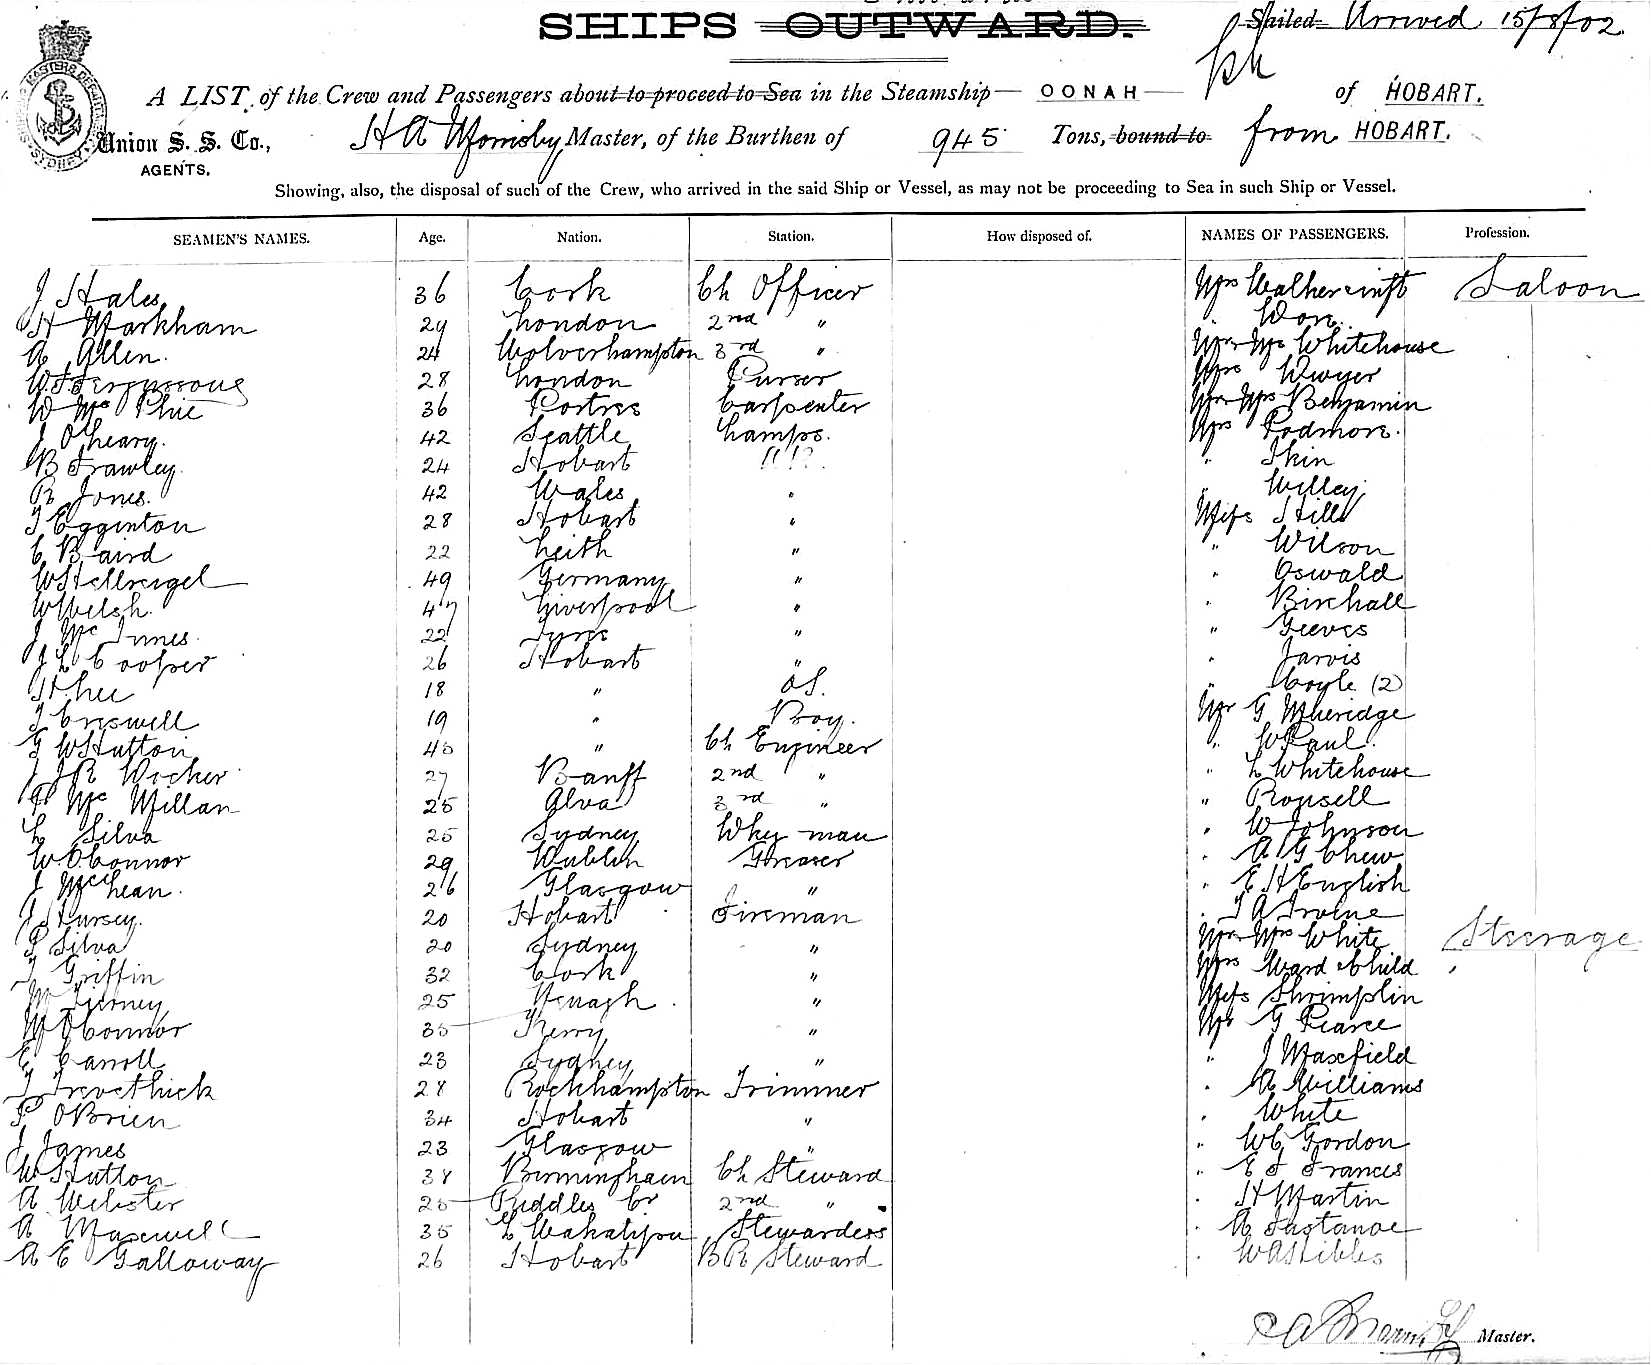 SHIPS OUTWARD. Sailed Arrived 15/8/02
A LIST of the Crew and Passengers about to proceed to Sea in the Steamship OONAH of HOBART.
Union S. S. Co., H A Master, of the Burthen of 945 Tons, bound to from HOBART.
AGENTS.
Showing, also, the disposal of such of the Crew, who arrived in the said Ship or Vessel, as may not be proceeding to Sea in such Ship or Vessel.
SEAMEN'S NAMES. Age. Nation. Station. How disposed of. NAMES OF PASSENGERS. Profession.
J Hales 36 Cork Ch Officer Mrs Saloon
H Markham 29 London 2nd "
A Allen. 24 Wolverhampton 3rd " Mr Mrs Whitehouse
28 London Purser Mrs Dwyer
W Mc Phie 36 Portree Carpenter Mr Mrs Benjamin
J O'Leary. 42 Seattle Lamps. Mrs Podmore.
B Frawley. 24 Hobart A.B. "
R Jones. 42 Wales " " Willey
T Egginton 28 Hobart " Miss Hill
C Baird 22 Leith " " Wilson
49 Germany " " Oswald
W Welsh. 47 Liverpool " " Birchall
J Mc Innes. 22 " " Geeves
J L Cooper 26 Hobart " " Jarvis
H Lee 18 " OS. " Coyle (2)
T Creswell 19 " Boy. Mr G
G W Hutton " Ch Engineer " W Paul.
J R 27 Banff 2nd " " L Whitehouse
Mc Millan 25 Alva 3rd " "
L Silva 25 Sydney man " W Johnson
W. O'Connor 29 Dublin Greaser " A G Chew
J McLean. 26 Glasgow " " E H English
J Hursey. 20 Hobart Fireman " T A Irvine
P Silva 20 Sydney " Mr Mrs White Steerage
T Griffin 32 Cork " Mrs Ward & Child "
M Tierney 25 Nenagh. " Miss Shrimplin
M O'Connor 35 Kerry " Mr G Pearce
E Carroll 23 Sydney " " J Maxfield
T Trevethick 28 Rockhampton Trimmer " A Williams
P O'Brien 34 Hobart " " White
J James 23 Glasgow " " W C Gordon
W Hutton 38 Birmingham Ch Steward " E J Frances
A Webster 25 Ruddles Cr 2nd " " H Martin
A Maxwell 35 L Wakatipu Stewardess " A
A E Galloway 26 Hobart B R Steward "
Master.